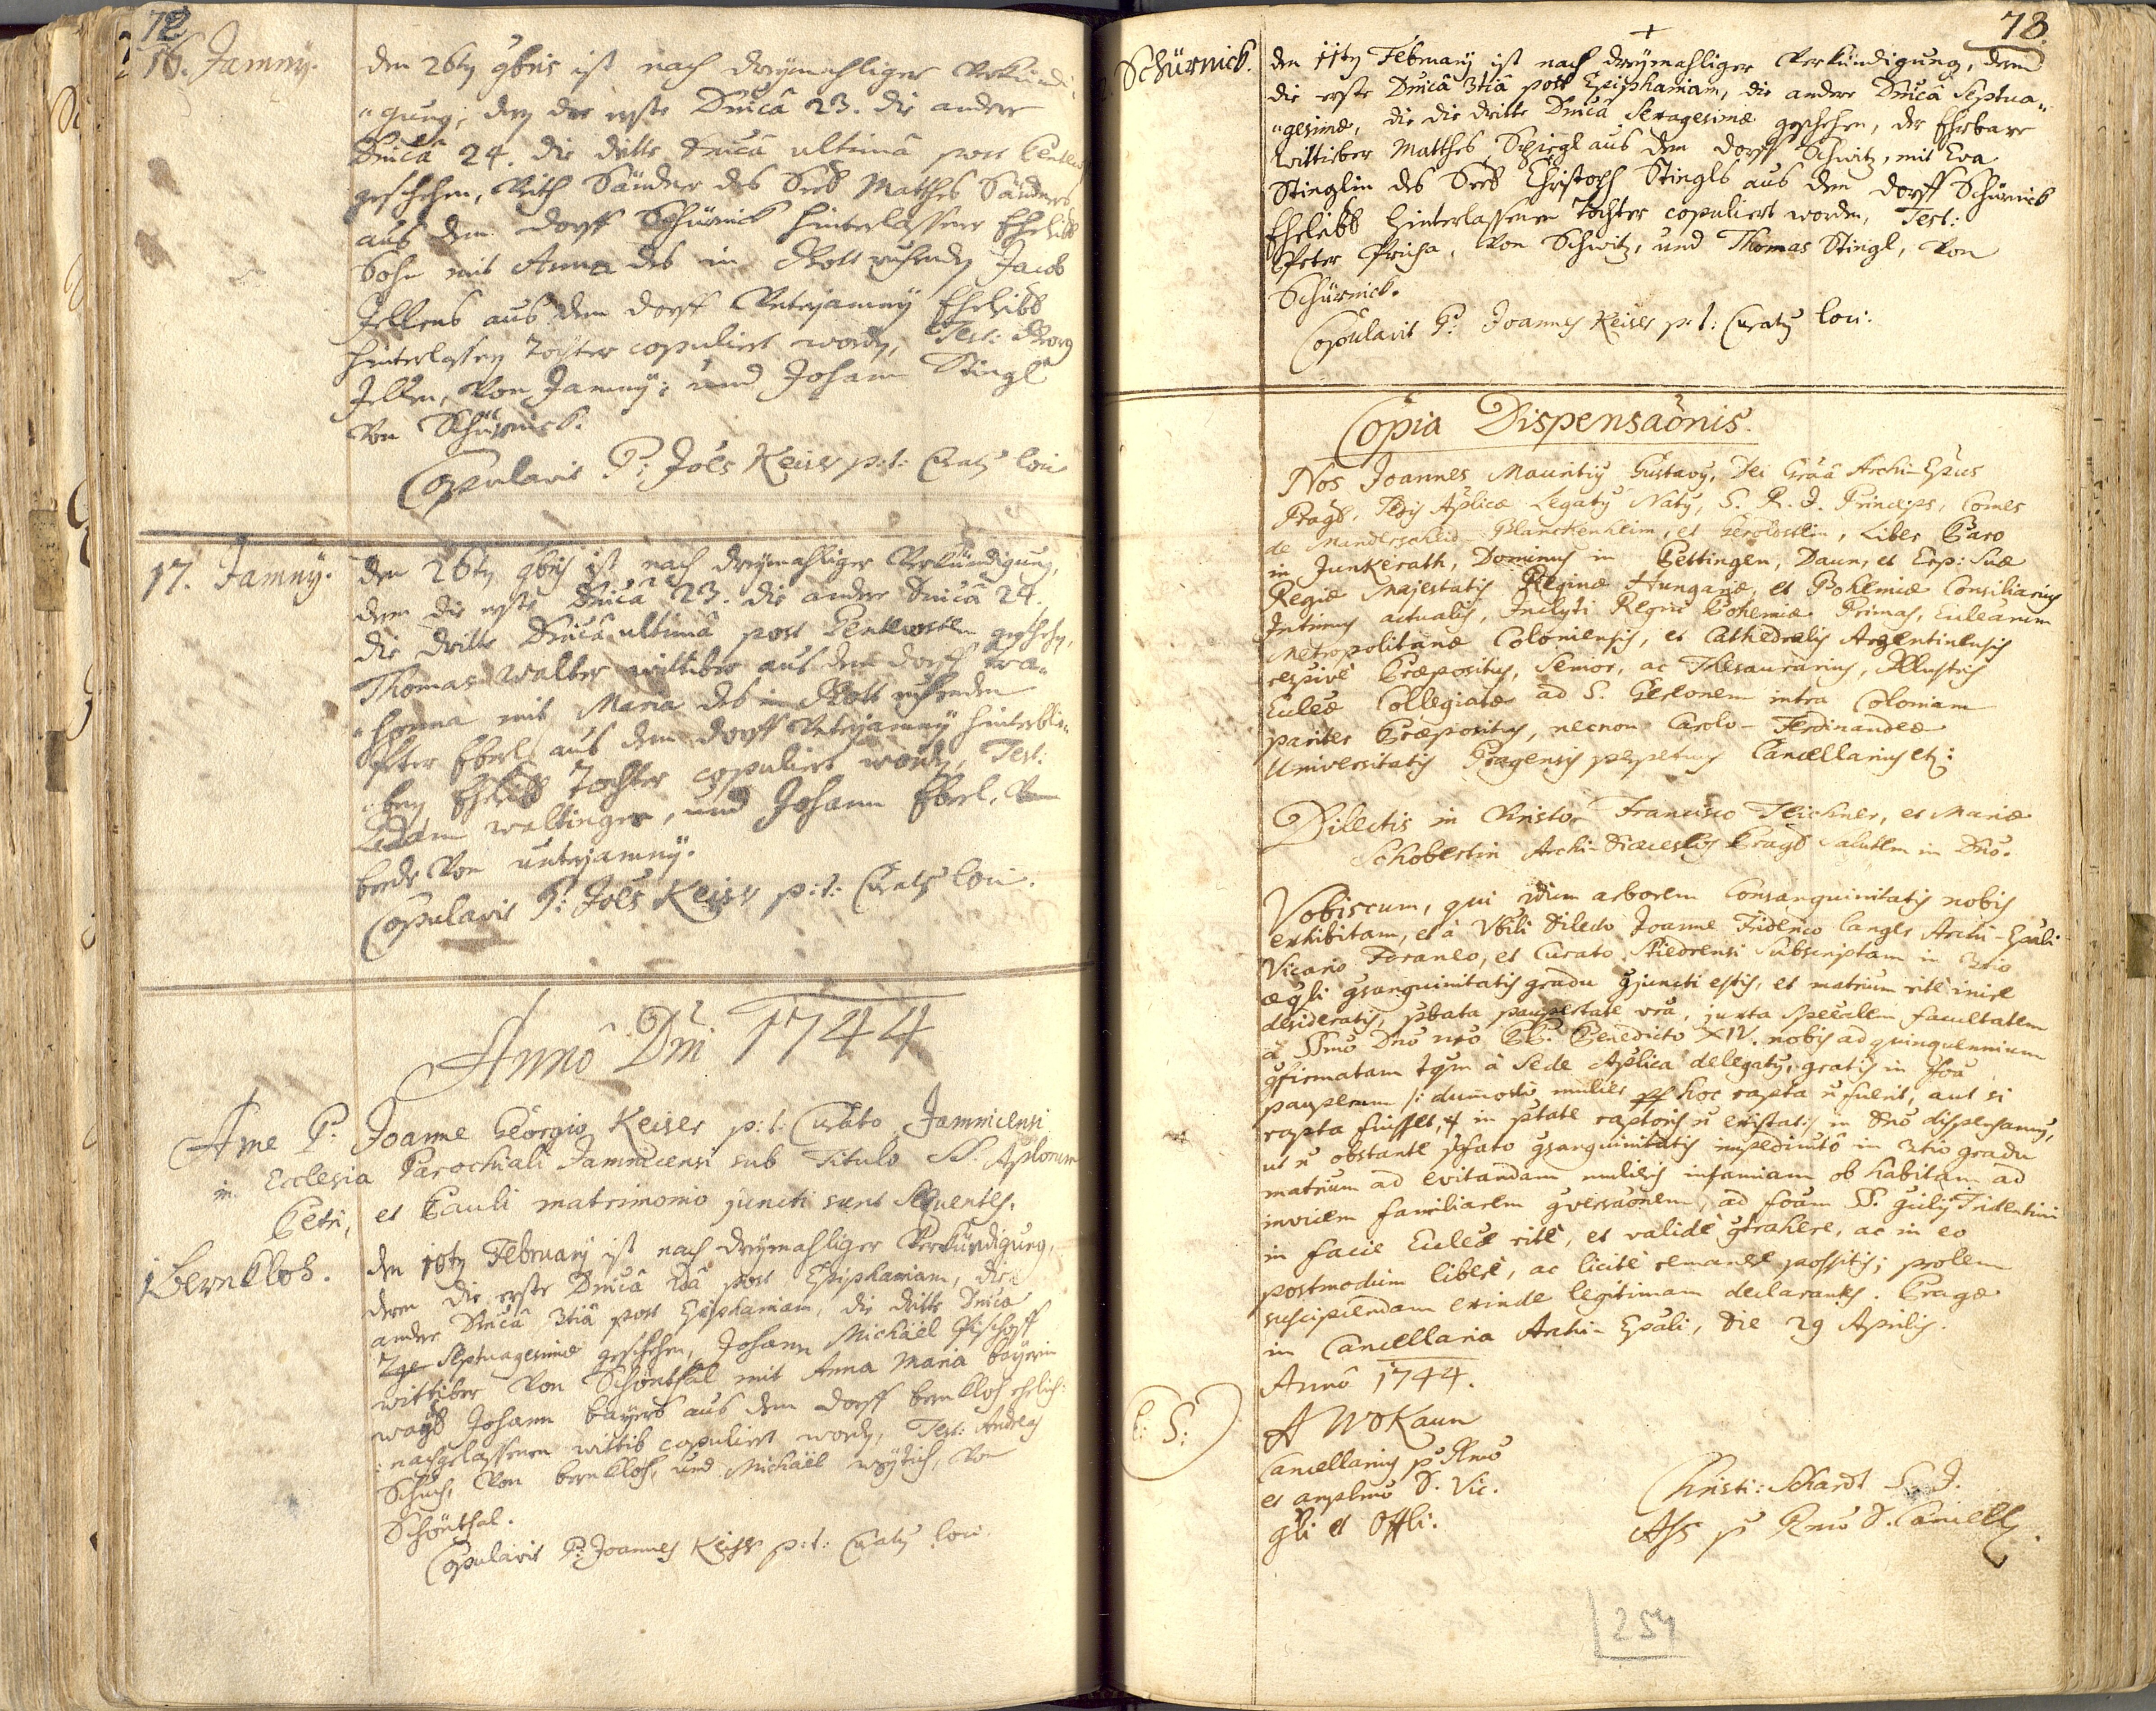 72
16. Jamny.
den 26ty 9bris ist nach dreymahliger Verkündi-
"gung, den die erste Dnicâ 23. die andere
Dnicâ 24. die dritte Dnicâ ultimâ post Pentec:
geschehen, Veith Sändner des Seel: Matthes Sändners
aus dem dorff Schürnick hinterlassener Ehelibl
Sohn mit Anna des in Gott ruhendty Jacob
Illkens aus dem dorff Unterjamny Ehelibl
hinterlassen Tochter copuliert wordty, Test: Georg
Illken, von Jamny; und Johann Stingl
von Schürnick.
Copulavit P: Joês Keiser p:t: Curaty loci
17. Jamny.
den 26ty 9bris ist nach dreymahliger Verkündigung,
denn die erste Dnicâ 23. die andere Dnicâ 24.
die dritte Dnicâ ultimâ post Pentecostem geschehen,
Thomas Walter wittiber aus dem dorff
mit Maria des in Gott ruhenden
Peter Eberl aus dem dorff Unterjamny hinterblie-
"beny Ehelibl Tochter copuliert wordty, Test:
Adam waltinger, und Johann Eberl, von
beede von unterjamny.
Copulavit P: Joês Keiser p:t: Curaty loci.
Annô Dñi 1744
A me P: Joanne Georgio Keiser p:t: Curato Jamnicensi
in Ecclesia Parochiali Jamnicensi sub Titulo SS. Aplorum
Petri, et Pauli matrimonio juncti sunt Sequentes.
1 Bernkloh.
den 10ty February ist nach dreymahliger Verkündigung,
denn die erste Dnicâ 2dâ post Epiphaniam, die
andere Dnicâ 3tiâ post Epiphaniam, die dritte Dnica
Septuagesimæ geschehen, Johann Michäel Pischoff
wittiber von Schönthal mit Anna Maria bayerin
wayl Johann bayers aus dem dorff bernkloh ehelich:
:nachgelassenen wittib copuliert wordty, Test: Andreas
Schuch, von bernkloh, und Michäel, von
Schönthal.
Copulavit P: Joannes Keiser p:t: Curaty loci.
78
2. Schürnick.
den 11ty February ist nach dreymahliger Verkündigung, denn
die erste Dnicâ 3tiâ post Epiphaniam, die andere Dnicâ Septua-
"gesimæ, die die dritte Dnicâ Sexagesimæ geschehen, der Ehrbare
Wittieber Matthes Spiegl aus dem dorff Schwitz, mit Eva
Stinglin des Seel: Christoph Stingls aus dem dorff Schürnick
Ehelibl hinterlassenen Tochter copuliert worden, Test:
Peter, von Schwitz, und Thomas Stingl, von
Schürnick.
Copulavit P: Joannes Keiser p:t: Curaty loci.
Copia Dispensaõnis.
Nos Joannes Mauritiy Gustavy, Dei Grãa Archi-Epus
Prags. Sedis Aplicæ Legaty Naty, S. R. I. Princeps, Comes
de Manderscheid-Blanckenheim, et Geroldstein, Liber Baro
in Junkerath, Dominus in Bettingen, Daun, et Erp: Suæ
Regiæ Majestatis Reginæ Hungariæ, et Bohemiæ Consiliarius
Intimus actualis, Inclyti Regni Bohemiæ Primas, Eccleârum
Metropolitanæ Coloniensis, et Cathedralis Argentinensis
respivè Præpositus, Senior, ac Thesaurarius, Illustris
Eccleæ Collegiatæ ad S. Gereonem intra Coloniam
pariter Præpositus, necnon Carolo-Ferdinandeæ
Universitatis Pragensis perpetuus Cancellarius etc:
Dilectis in Christo Francisco Teichner, et Mariæ
Schobertin Archi-Diœcesis Prags Salutem in Dño.
Vobiscum, qui arborem Consanguinitatis nobis
exhibitam, et à Vbili Dilecto Joanne Friderico Langer Archi-Epali
Vicario Foraneo, et Curato Subscriptam in 3tio
æqli gsanguinitatis gradu gjuncti estis, et matrium ritè inire
desideratis, ptata paupertate vra, juxta specialem facultatem
à SSmo Dño nro PP. Benedicto XIV. nobis ad quinquennium
gfirmatam tqm à Sede Aplica delegaty, gratis in
pauperum /: dummodo mulier hoc rapta ñ fuerit, aut si
rapta fuisset, in ptate raptoris ñ existat:/ in Dño dispensamus,
ut ñ obstante pfato gsanguinitatis impedimto in 3tio gradu
matrium ad evitandam mulieris infamiam ob habitam ad
invicem familiarem gversaõnem, ad foam SS. Tridentini
in facie Eccleæ ritè, et validè gtrahere, ac in eo
postmodum liberè, ac licitè remanere possitis; prolem
suscipiendam exinde legitimam declarantes. Pragæ
in Cancellaria Archi-Epali, die 29 Aprilis.
Annô 1744.
L: S:
A W Kaun
Cancellarius p Rmo
et amplmo D. Vic.
Gli et Offli.
Christi: Schardt S. J.
Ass p Rmo D. Cancell.
254